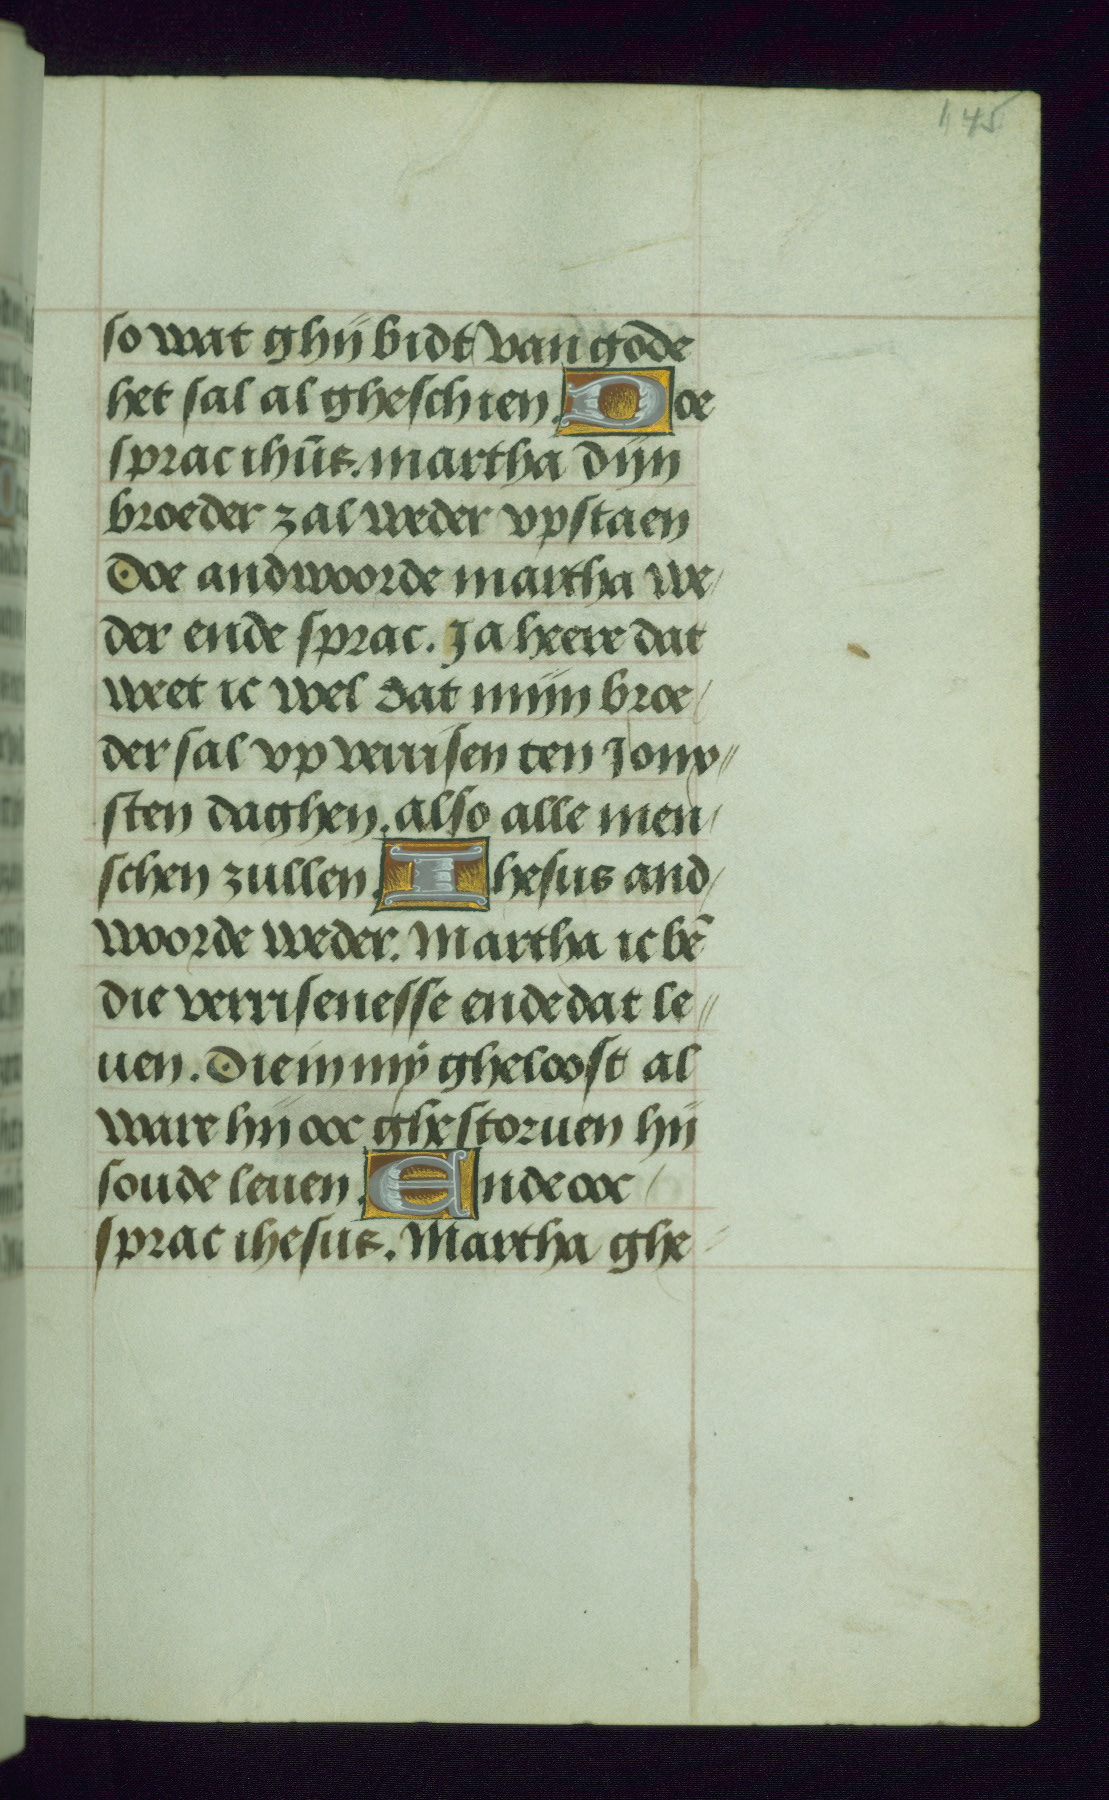 145
so wat ghij bidt van gode
het sal al gheschien. Doe
sprac ihūs. martha dijn
broeder zal weder vpstaen
Doe andwoorde martha we/
der ende sprac. Ja heere dat
weet ic wel dat mijn broe/
der sal vp verrisen ten Jonx//
sten daghen. also alle men/
schen zullen. Ihesus and/
woorde weder. Martha ic bē
die verrisenesse ende dat le//
uen. Die in mÿ gheloost al
ware hij ooc ghestoruen hij
soude leuen. Ende ooc /
sprac ihesus. Martha ghe//